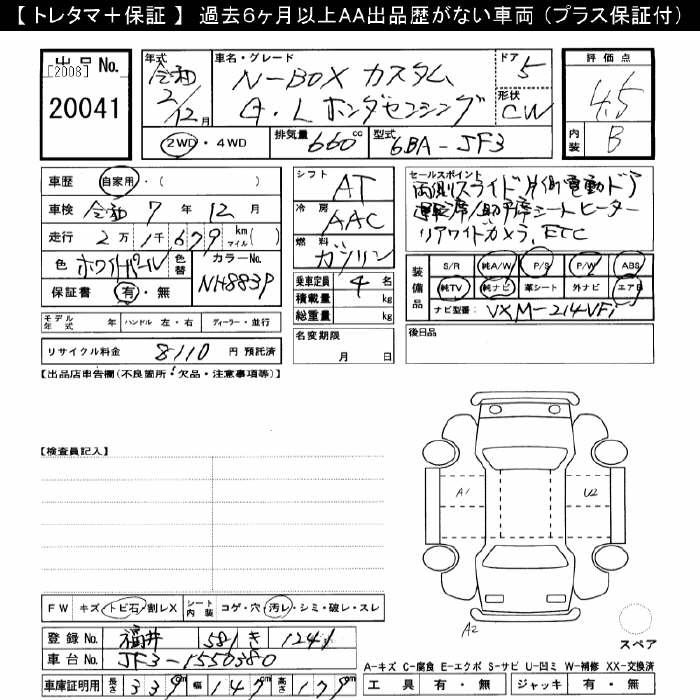 【トレタマ＋保証】 過去6ヶ月以上AA出品歴がない車両（プラス保証付）
出品No.
[2008]
20041
年式
令和
2/12月
車名・グレード
N-BOX カスタム
G・L ホンダセンシング
ドア
5
形状
CW
評価点
4.5
内装
B
2WD・4WD
排気量 660cc
型式 6BA-JF3
車歴 自家用・( )
車検 令和 7年 12月
走行 2万 1千 679 km マイル( )
色 ホワイトパール
色替
カラーNo.
NH883P
保証書 有・無
モデル年式 年
ハンドル 左・右
ディーラー・並行
リサイクル料金 8110 円 預託済
シフト AT
冷房 AAC
燃料 ガソリン
乗車定員 4 名
積載量 kg
総重量 kg
名変期限
月 日
セールスポイント
両側スライド片側電動ドア
運転席/助手席シートヒーター
リアワイドカメラ、ETC
装備品
S/R 純A/W P/S P/W ABS
純TV 純ナビ 革シート 外ナビ エアB
ナビ型番: VXM-214VFi
後日品
【出品店申告欄(不良箇所・欠品・注意事項等)】
【検査員記入】
A1
U2
A2
スペア
FW キズ/トビ石/割レX
シート内装 コゲ・穴・汚レ・シミ・破レ・スレ
登録No. 福井 581 き 1241
車台No. JF3-1550380
車庫証明用 長さ 339cm 幅 147cm 高さ 179cm
A-キズ C-腐食 E-エクボ S-サビ U-凹ミ W-補修 XX-交換済
工具 有・無 ジャッキ 有・無